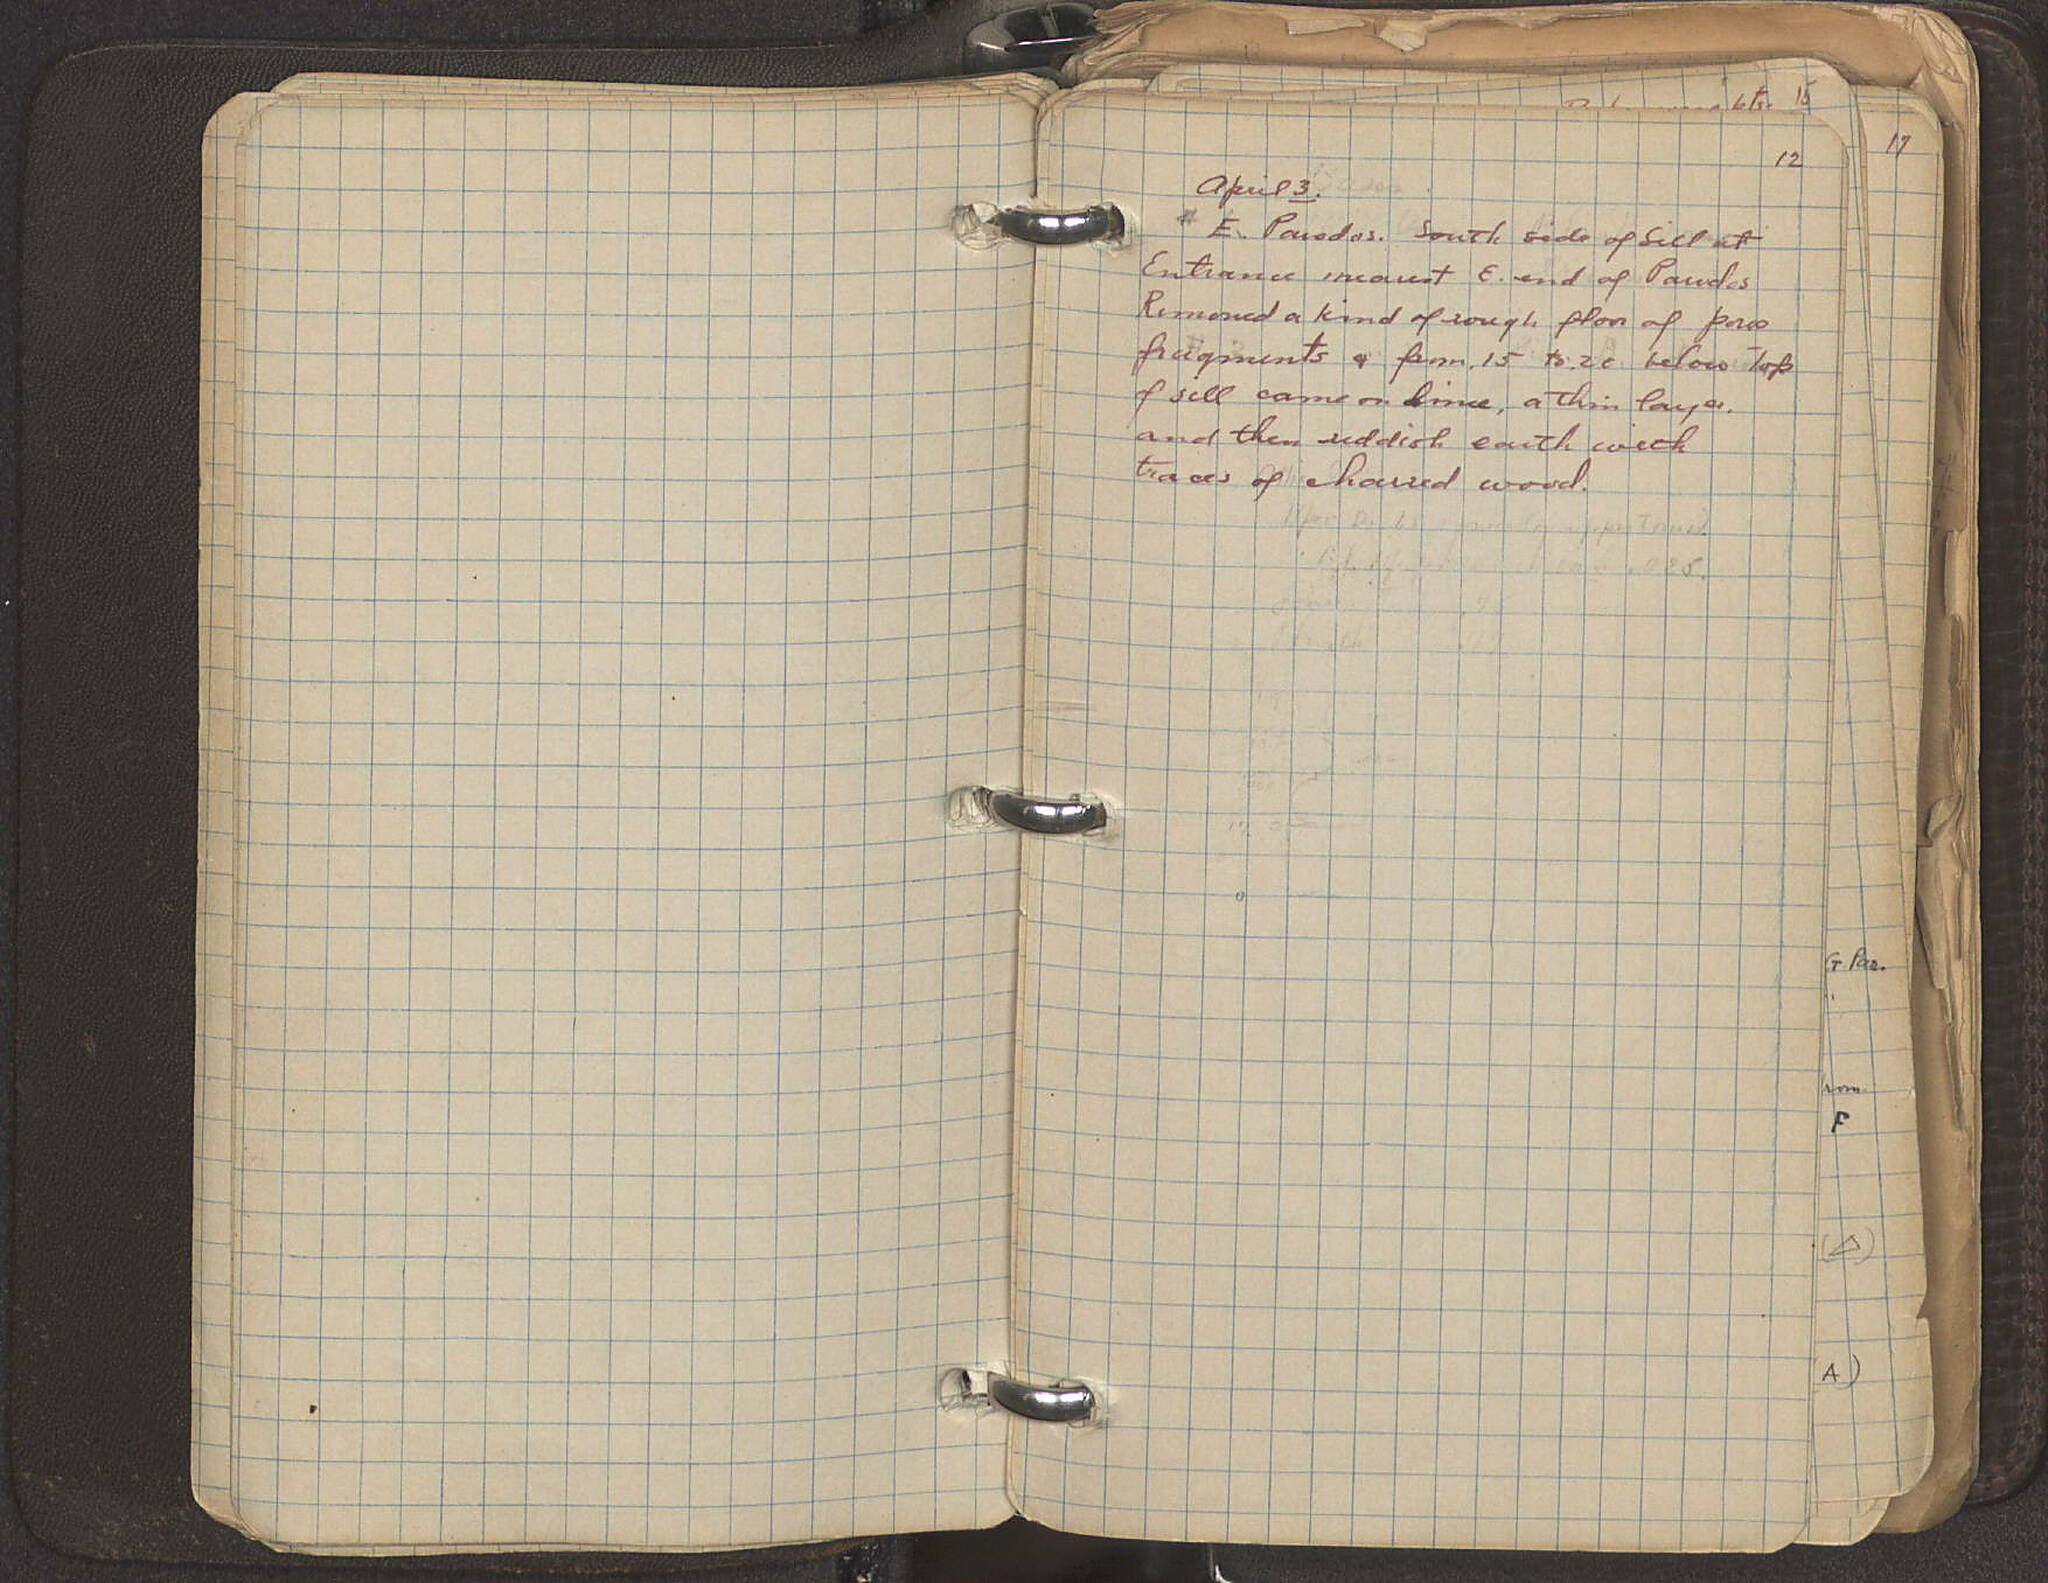 15
17
12
April 3.
# E. Parodos. South side of Sill at
Entrance nearest E. end of Parodos
Removed a kind of rough floor of poros
fragments & from .15 to .20 below top
of sill came on lime, a thin layer.
and then reddish earth with
traces of charred wood.
.025.
G. Par.
"
rom.
F
(A)